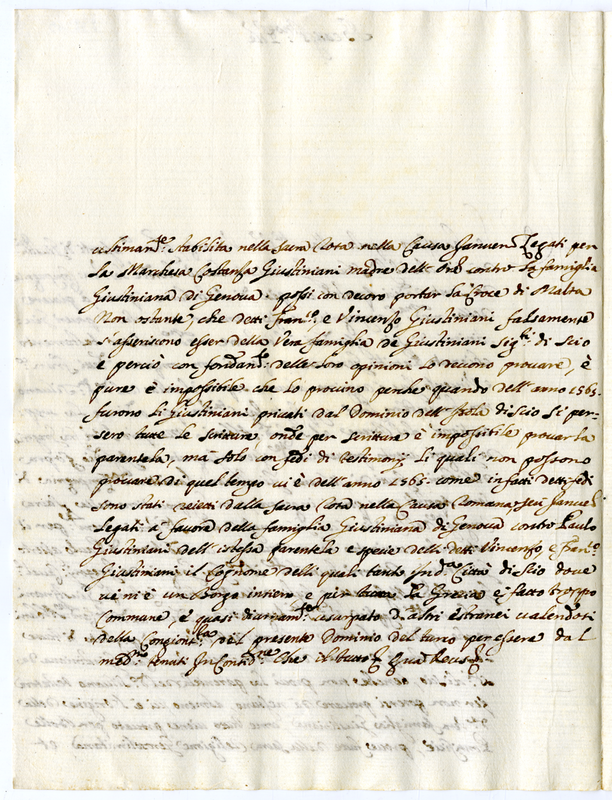 stabilita nella Sacra Rota nella Causa Januen Legati per
la Marchesa Costanza Giustiniani madre dell' contro la famiglia
Giustiniana di Genova possi con decoro portar la Croce di Malta
Non ostante, che detti Fran.co, e Vincenzo Giustiniani falsamente
s'asseriscono esser della Vera famiglia de Giustiniani Sig.ri di Scio
e perciò con delle loro opinioni lo devono provare, è
pure è impossibile che lo provino perche quando dell' anno 1565
furono li Giustiniani privati dal Dominio dell' Isola di Scio si per-
sero tutte le scritture onde per scrittura è impossibile provar la
parentela, ma solo con fedi di testimonij li quali non possono
provare di quel tempo vi è dell' anno 1565 come in fatti detti fedi
sono stati reietti dalla Sacra Rota nella Causa Romana, seu Januen
Legati a favore della famiglia Giustiniana di Genova contro Paulo
Giustiniani dell' istessa parentela e specie delli detti Vincenzo, e Fran.co
Giustiniani il Cognome delli quali tanto In da Città di Scio dove
ve ni è un Borgo intiero e per la Grecia è fatto troppo
commune, è quasi usurpato d'altri estranei valendosi
della del presente Dominio del turco per essere dal
med.mo tenuti In Che il tutto